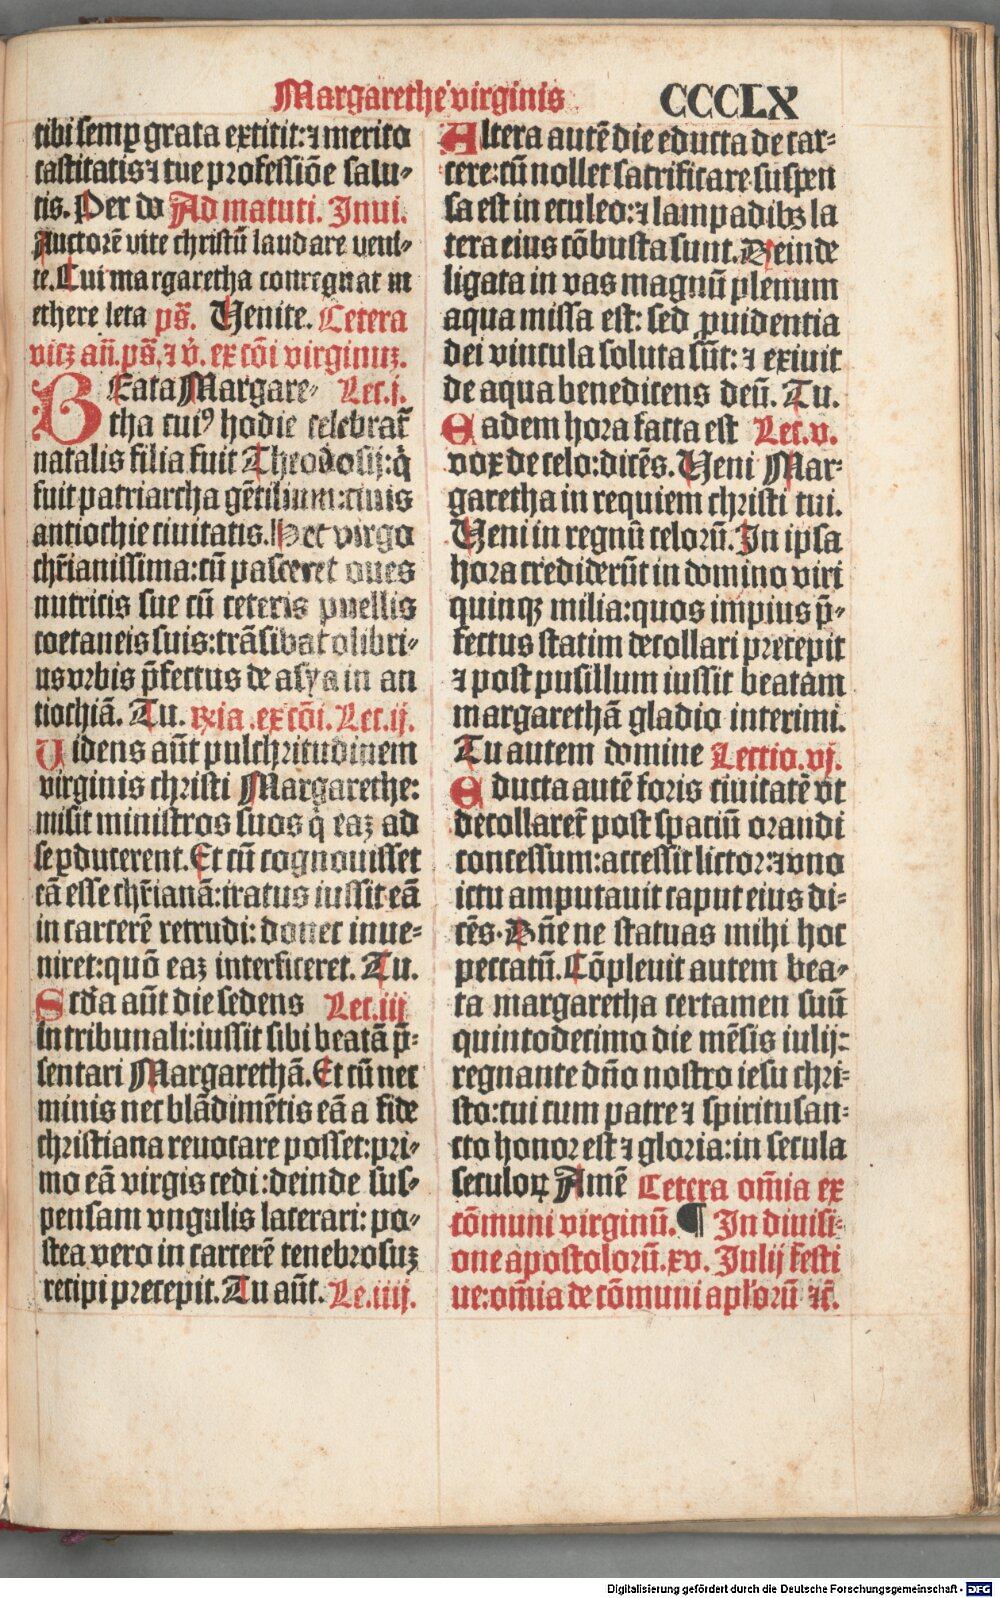 Margarethe virginis CCCCLX
tibi semꝑ grata extitit: ⁊ merito
castitatis ⁊ tue professiõe salu-
tis. Per do Ad matuti. Inui.
Auctorẽ vite christũ laudare veni-
te. Cui margaretha conregnat in
ethere leta ps̃. Venite. Cetera
vicꝫ añ. ps̃. ⁊ v̓. ex cõi virginuꝫ.
BEata Margare- Lec. j.
tha cuiꝰ hodie celebrat̃
natalis filia fuit Theodosij: q̇
fuit patriarcha gẽtilium: ciuis
antiochie ciuitatis. Hec virgo
chr̃ianissima: cũ pasceret oues
nutricis sue cũ ceteris puellis
coetaneis suis: trãsibat olibri-
us vrbis p̃fectus de asya in an
tiochiã. Tu. Rx̃ia. ex cõi. Lec. ij.
Uidens aũt pulchritudinem
virginis christi Margarethe:
misit ministros suos q̇ eaꝫ ad
se ꝓducerent. Et cũ cognouisset
eã esse chr̃ianã: iratus iussit eã
in carcerẽ retrudi: donec inue-
niret: quõ eaꝫ interficeret. Tu.
Scd̃a aũt die sedens Lec. iij
in tribunali: iussit sibi beatã p̃-
sentari Margarethã. Et cũ nec
minis nec blãdimẽtis eã a fide
christiana reuocare posset: pri-
mo eã virgis cedi: deinde sus-
pensam vngulis lacerari: po-
stea vero in carcerẽ tenebrosuꝫ
recipi precepit. Tu aũt. Le. iiij.
Altera autẽ die educta de car-
cere: cũ nollet sacrificare suspen
sa est in eculeo: ⁊ lampadibꝫ la
tera eius cõbusta sunt. Deinde
ligata in vas magnũ plenum
aqua missa est: sed ꝓuidentia
dei vincula soluta sũt: ⁊ exiuit
de aqua benedicens deũ. Tu.
Eadem hora facta est Lec. v.
vox de celo: dicẽs. Veni Mar-
garetha in requiem christi tui.
Veni in regnũ celorũ. In ipsa
hora crediderũt in domino viri
quinqꝫ milia: quos impius p̃-
fectus statim decollari precepit
⁊ post pusillum iussit beatam
margarethã gladio interimi.
Tu autem domine Lectio. vj.
Educta autẽ foris ciuitatẽ vt
decollaret̃ post spaciũ orandi
concessum: accessit lictor: ⁊ vno
ictu amputauit caput eius di-
cẽs. Dñe ne statuas mihi hoc
peccatũ. Cõpleuit autem bea-
ta margaretha certamen suũ
quintodecimo die mẽsis iulij:
regnante dño nostro iesu chri-
sto: cui cum patre ⁊ spiritusan-
cto honor est ⁊ gloria: in secula
seculoꝝ Amẽ Cetera om̃ia ex
cõmuni virginũ. ¶ In diuisi-
one apostolorũ. xv. Julij festi
ue: om̃ia de cõmuni apl̃orũ ⁊c̃.
Digitalisierung gefördert durch die Deutsche Forschungsgemeinschaft - DFG